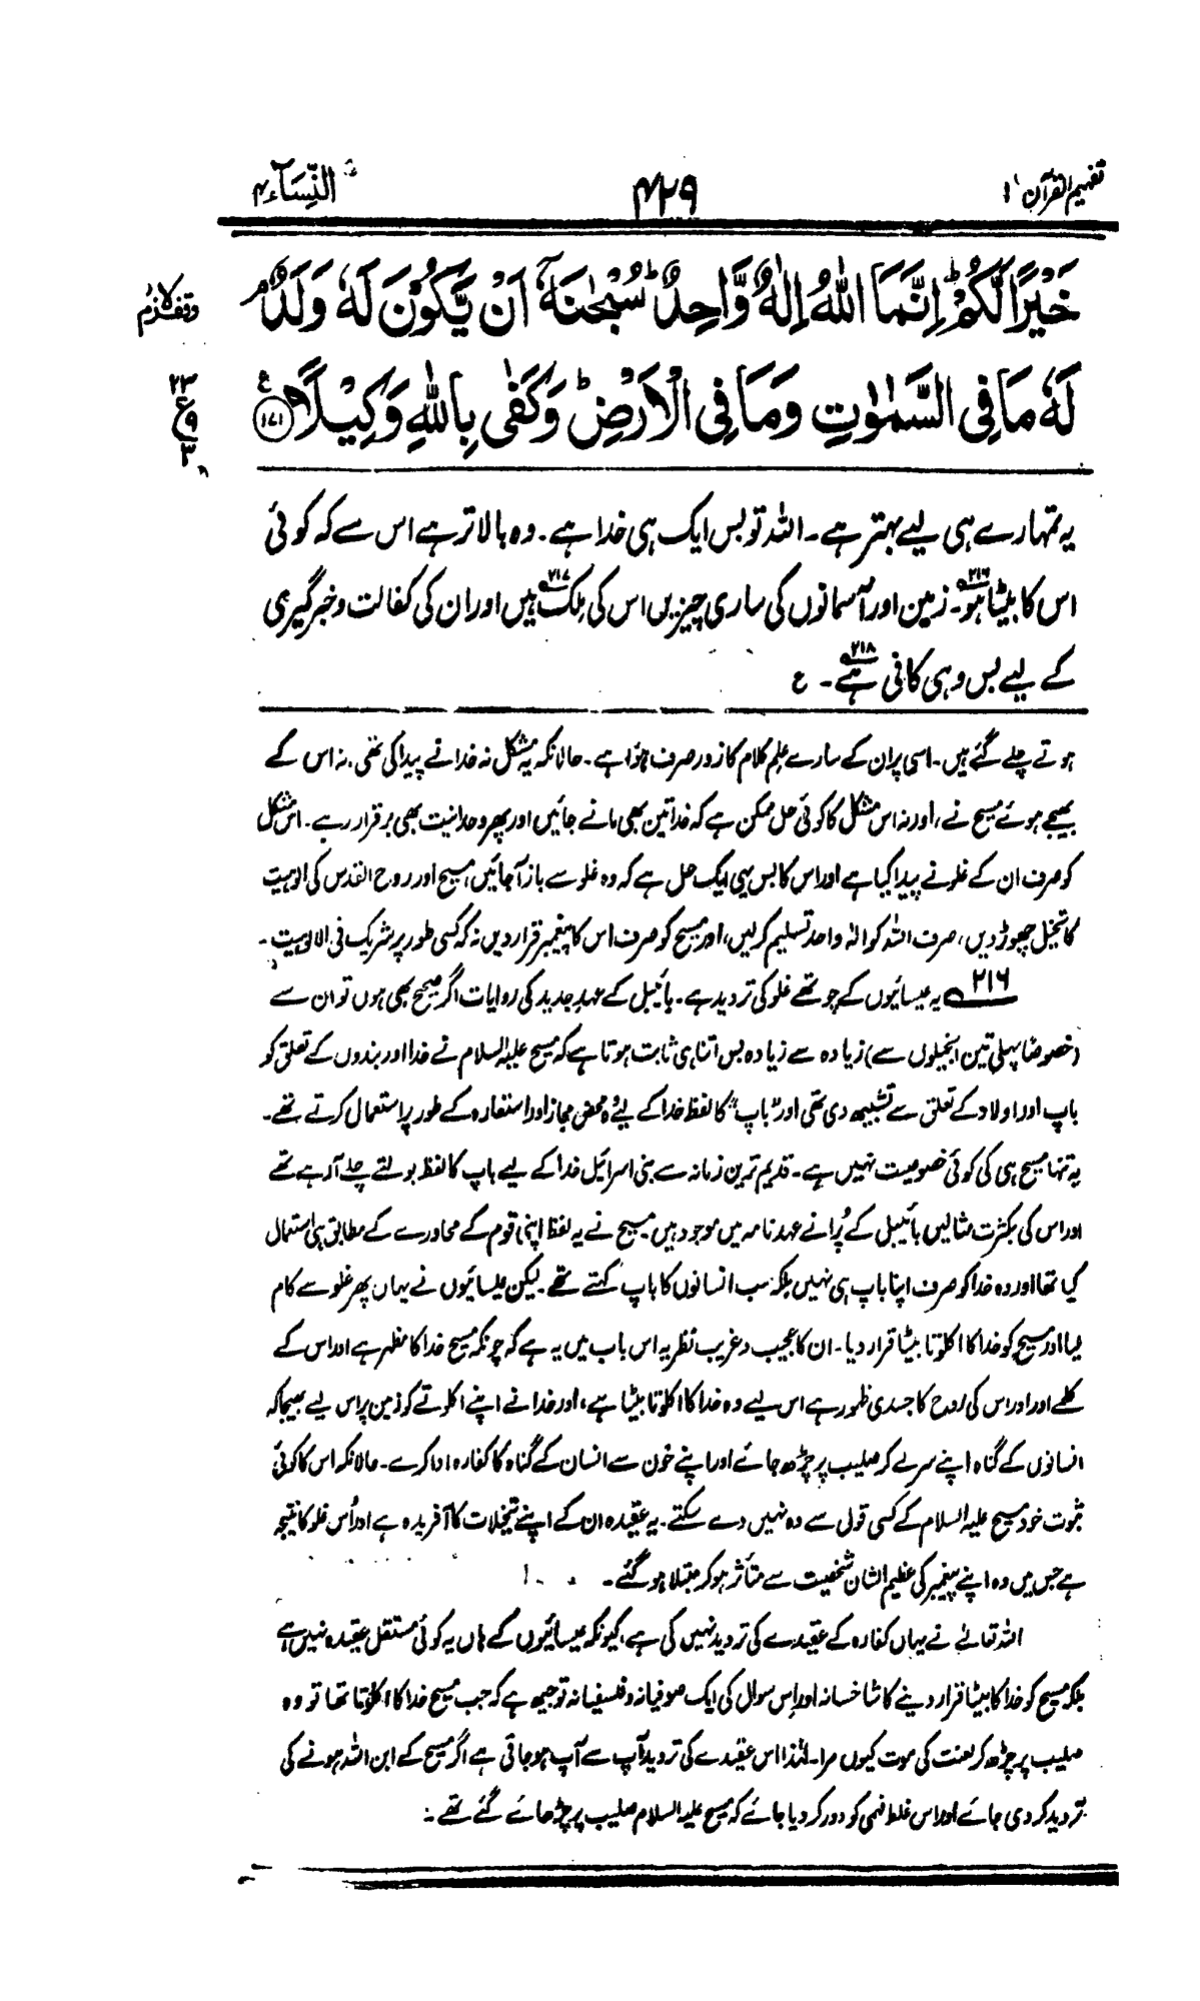 تفہیم القرآن ۱
۴۲۹
النِّسَآء ۴
خَيْرًا لَّكُمْ ؕ اِنَّمَا اللّٰهُ اِلٰهٌ وَّاحِدٌ ؕ سُبْحٰنَهٗۤ اَنْ يَّكُوْنَ لَهٗ وَلَدٌ ۘ
وقف لازم
لَهٗ مَا فِى السَّمٰوٰتِ وَمَا فِى الْاَرْضِ ؕ وَكَفٰى بِاللّٰهِ وَكِيْلًا ﴿۱۷۱﴾ ع
۲۳
ع ۹
۳
یہ تمہارے ہی لیے بہتر ہے۔ اللہ تو بس ایک ہی خدا ہے۔ وہ بالاتر ہے اس سے کہ کوئی
اس کا بیٹا ہو۲۱۶۔ زمین اور آسمانوں کی ساری چیزیں اس کی مِلک۲۱۷ ہیں اور ان کی کفالت و خبرگیری
کے لیے بس وہی کافی ہے۲۱۸۔ ع
ہوتے چلے گئے ہیں۔ اسی پر ان کے سارے علم کلام کا زور صرف ہؤا ہے۔ حالانکہ یہ مشکل نہ خدا نے پیدا کی تھی، نہ اس کے
بھیجے ہوئے مسیح نے، اور نہ اس مشکل کا کوئی حل ممکن ہے کہ خدا تین بھی مانے جائیں اور پھر وحدانیت بھی برقرار رہے۔ اس مشکل
کو صرف ان کے غلو نے پیدا کیا ہے اور اس کا بس یہی ایک حل ہے کہ وہ غلو سے باز آجائیں، مسیح اور روح القدس کی الوہیت
کا تخیل چھوڑ دیں، صرف اللہ کو الٰہ واحد تسلیم کرلیں، اور مسیح کو صرف اس کا پیغمبر قرار دیں نہ کہ کسی طور پر شریک فی الالوہیت۔
۲۱۶ یہ عیسائیوں کے چوتھے غلو کی تردید ہے۔ بائیبل کے عہد جدید کی روایات اگر صحیح بھی ہوں تو ان سے
(خصوصًا پہلی تین انجیلوں سے) زیادہ سے زیادہ بس اتنا ہی ثابت ہوتا ہے کہ مسیح علیہ السلام نے خدا اور بندوں کے تعلق کو
باپ اور اولاد کے تعلق سے تشبیہ دی تھی اور ”باپ“ کا لفظ خدا کے لیے وہ محض مجاز اور استعارہ کے طور پر استعمال کرتے تھے۔
یہ تنہا مسیح ہی کی کوئی خصوصیت نہیں ہے۔ قدیم ترین زمانہ سے بنی اسرائیل خدا کے لیے باپ کا لفظ بولتے چلے آرہے تھے
اور اس کی بکثرت مثالیں بائیبل کے پُرانے عہد نامہ میں موجود ہیں۔ مسیح نے یہ لفظ اپنی قوم کے محاورے کے مطابق ہی استعمال
کیا تھا اور وہ خدا کو صرف اپنا باپ ہی نہیں بلکہ سب انسانوں کا باپ کہتے تھے۔ لیکن عیسائیوں نے یہاں پھر غلو سے کام
لیا اور مسیح کو خدا کا اکلوتا بیٹا قرار دیا۔ ان کا عجیب و غریب نظریہ اس باب میں یہ ہے کہ چونکہ مسیح خدا کا مظہر ہے اور اس کے
کلمے اور اور اس کی روح کا جسدی ظہور ہے اس لیے وہ خدا کا اکلوتا بیٹا ہے، اور خدا نے اپنے اکلوتے کو زمین پر اس لیے بھیجا کہ
انسانوں کے گناہ اپنے سر لے کر صلیب پر چڑھ جائے اور اپنے خون سے انسان کے گناہ کا کفارہ ادا کرے۔ حالانکہ اس کا کوئی
ثبوت خود مسیح علیہ السلام کے کسی قول سے وہ نہیں دے سکتے۔ یہ عقیدہ ان کے اپنے تخیلات کا آفریدہ ہے اور اُس غلو کا نتیجہ
ہے جس میں وہ اپنے پیغمبر کی عظیم الشان شخصیت سے متأثر ہو کر مبتلا ہو گئے۔
اللہ تعالیٰ نے یہاں کفارہ کے عقیدے کی تردید نہیں کی ہے، کیونکہ عیسائیوں کے ہاں یہ کوئی مستقل عقیدہ نہیں ہے
بلکہ مسیح کو خدا کا بیٹا قرار دینے کا شاخسانہ اور اِس سوال کی ایک صوفیانہ و فلسفیانہ توجیہ ہے کہ جب مسیح خدا کا اکلوتا تھا تو وہ
صلیب پر چڑھ کر لعنت کی موت کیوں مرا۔ لہٰذا اس عقیدے کی تردید آپ سے آپ ہو جاتی ہے اگر مسیح کے ابن اللہ ہونے کی
تردید کر دی جائے اور اس غلط فہمی کو دور کر دیا جائے کہ مسیح علیہ السلام صلیب پر چڑھائے گئے تھے۔